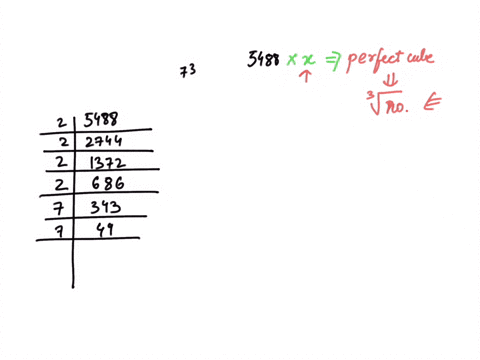 7³ 5488 × x ⇒ perfect cube
↑ ⇓
∛no. ⋲
2 | 5488
2 | 2744
2 | 1372
2 | 686
7 | 343
7 | 49